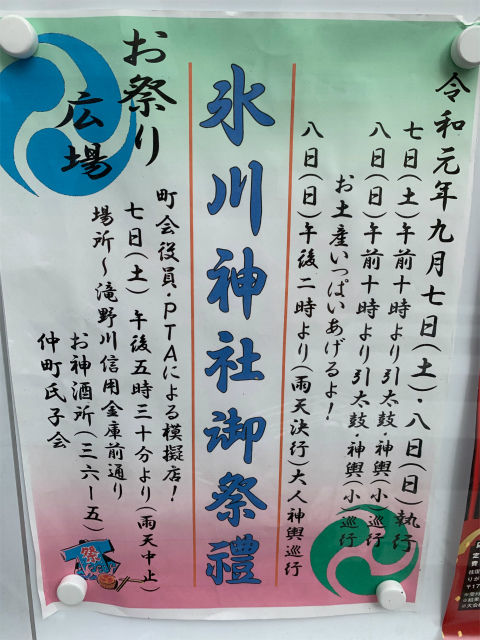 令和元年九月七日(土)・八日(日)執行
七日(土)午前十時より引太鼓・神輿(小)巡行
八日(日)午前十時より引太鼓・神輿(小)巡行
お土産いっぱいあげるよ!
八日(日)午後二時より(雨天決行)大人神輿巡行
氷川神社御祭禮
お祭り
広場
町会役員・PTAによる模擬店!
七日(土)午後五時三十分より(雨天中止)
場所~滝野川信用金庫前通り
お神酒所(三六ー五)
仲町氏子会
祭